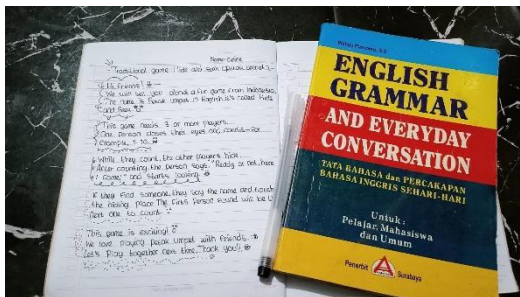 Name: Celine
Traditional game Hide and Seek (Petak umpet)
Hi friends!
We will tell you about a fun game from Indonesia.
The name is Petak umpet. In English it's called Hide
and Seek
This game needs 3 or more players.
One Person closes their eyes and counts - For
example, 1 to
While they count, the other players hide
After counting the person says, "Ready or not, here
I come," and starts looking
If they find someone, they say the name and touch
the hiding place. The First Person Found will be
next one to count.
This game is exciting!
We love playing Petak umpet with friends.
Let's Play together next time. Thank you!
ENGLISH
GRAMMAR
AND EVERYDAY
CONVERSATION
TATA BAHASA dan PERCAKAPAN
BAHASA INGGRIS SEHARI-HARI
Untuk:
Pelajar, Mahasiswa
dan Umum
Penerbit
Surabaya